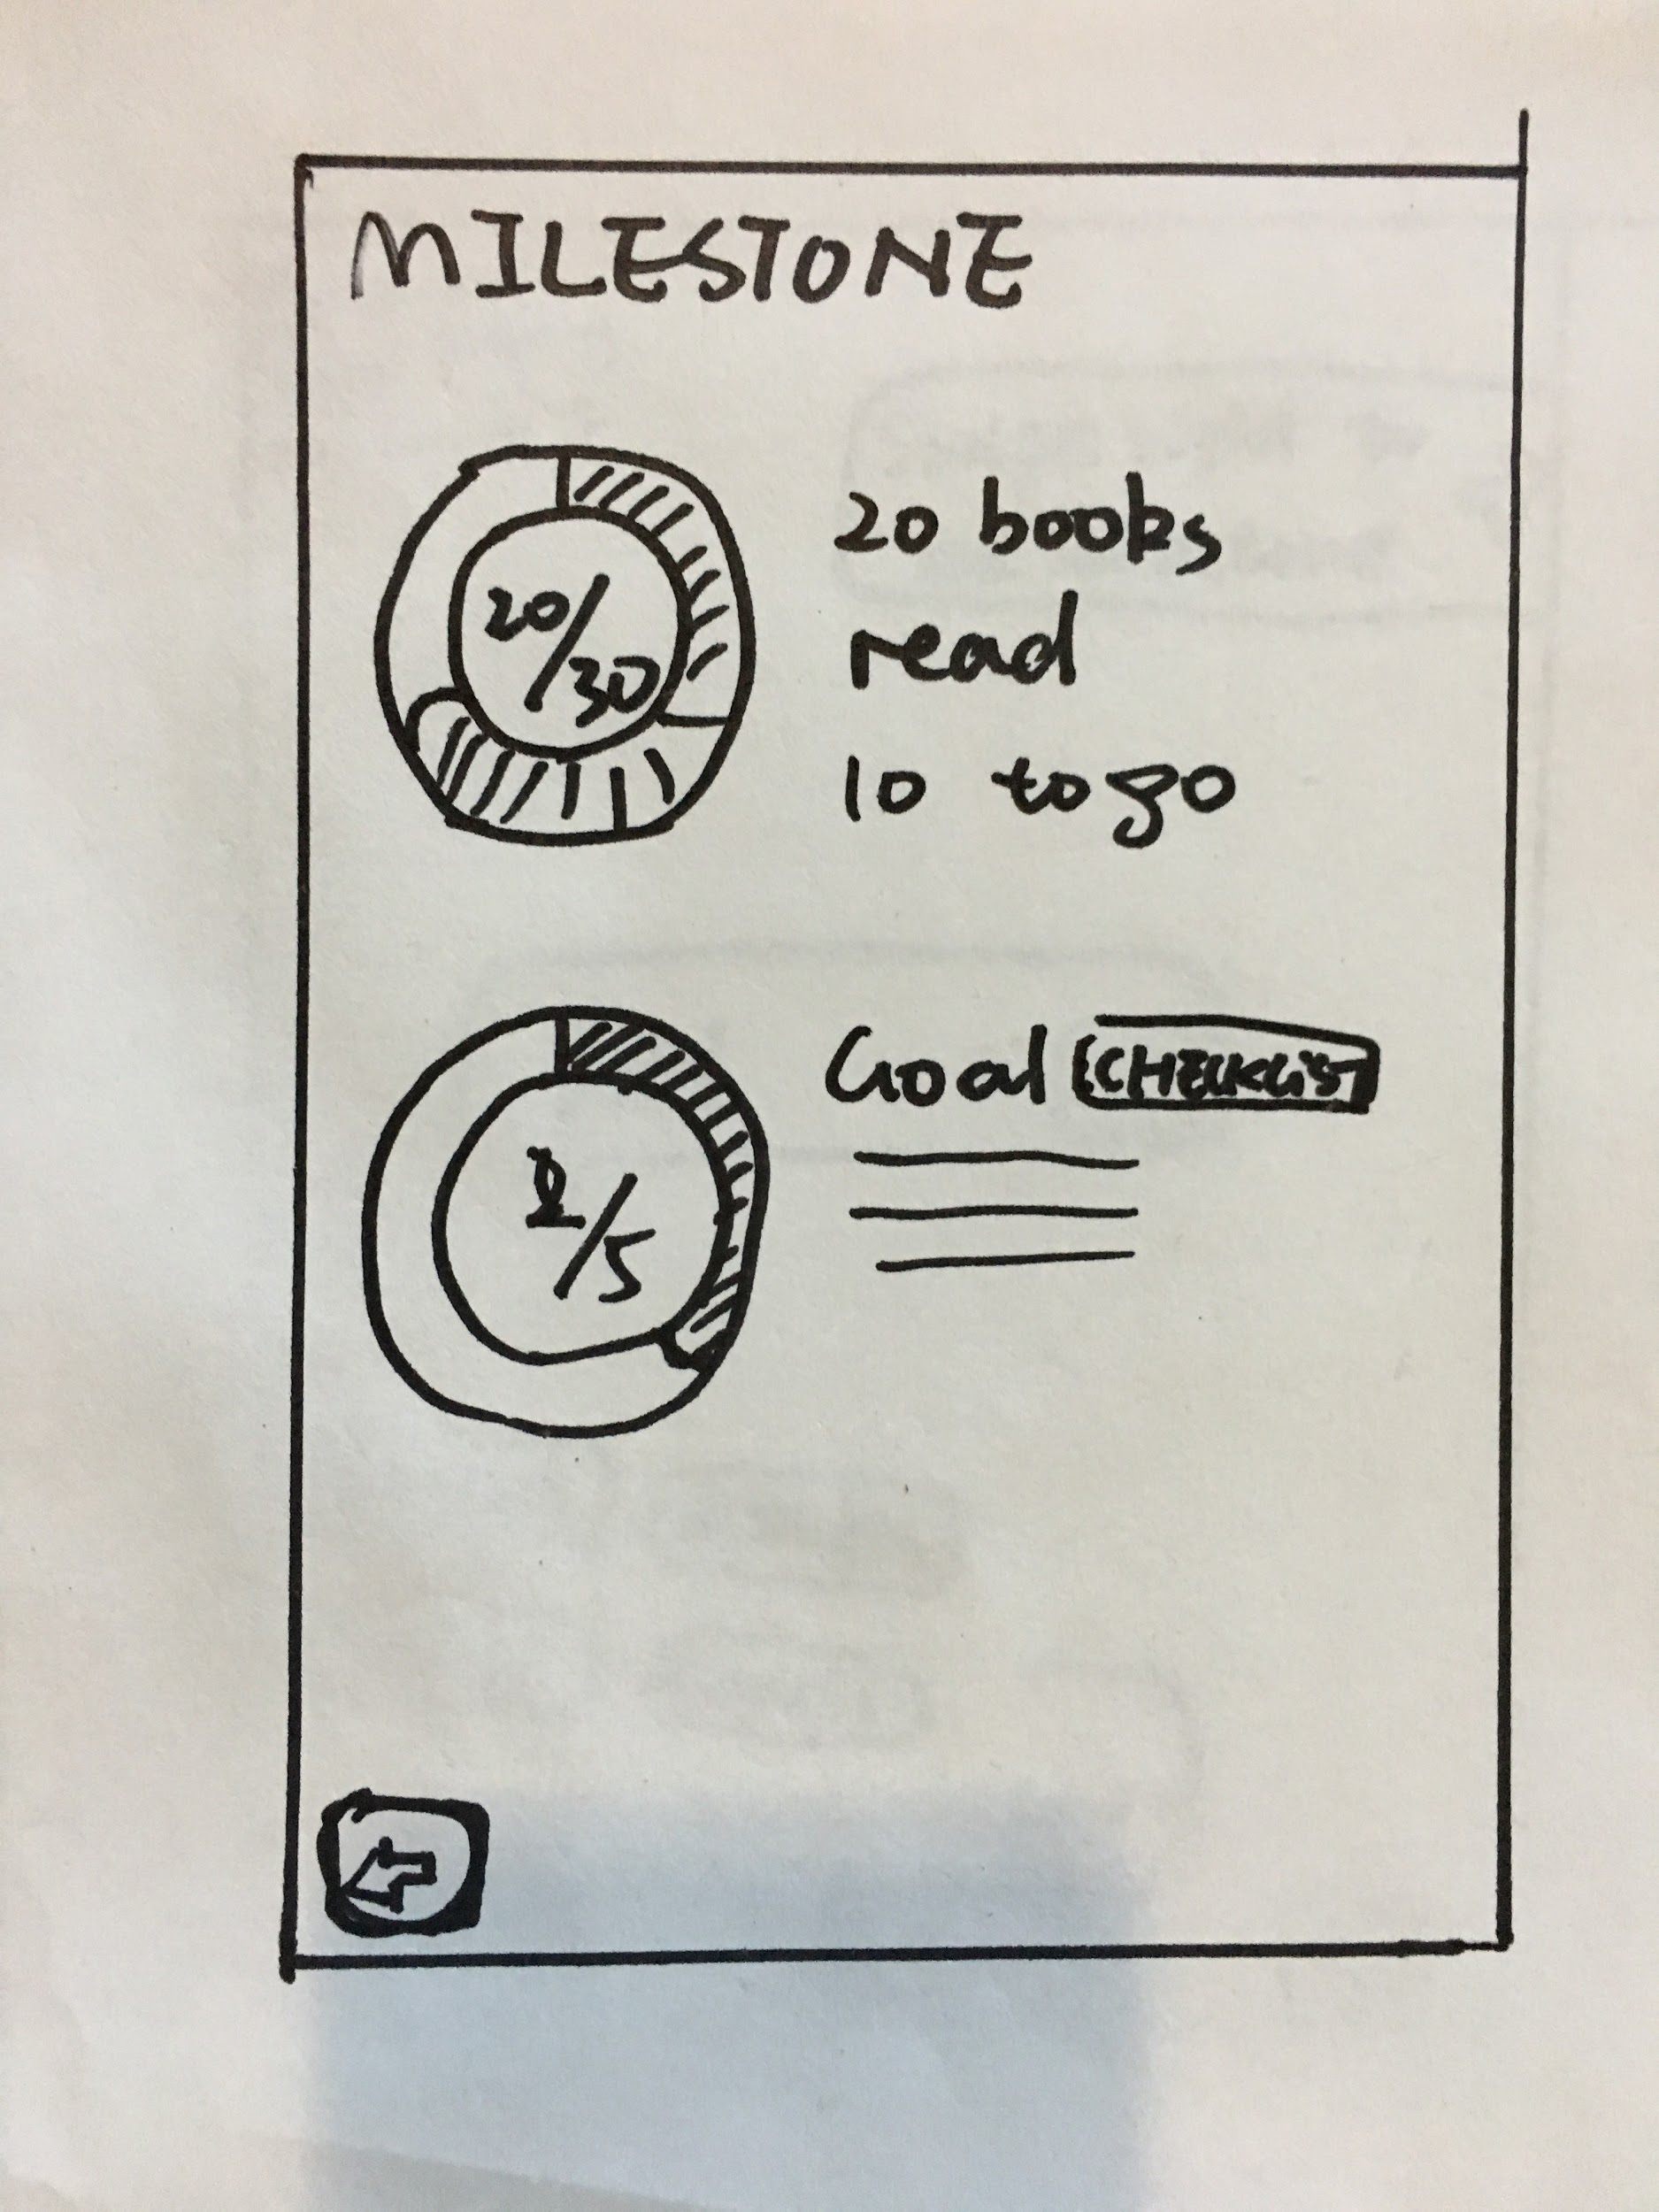 MILESTONE
20/30
20 books
read
10 to go
2/5
Goal CHECKLIST